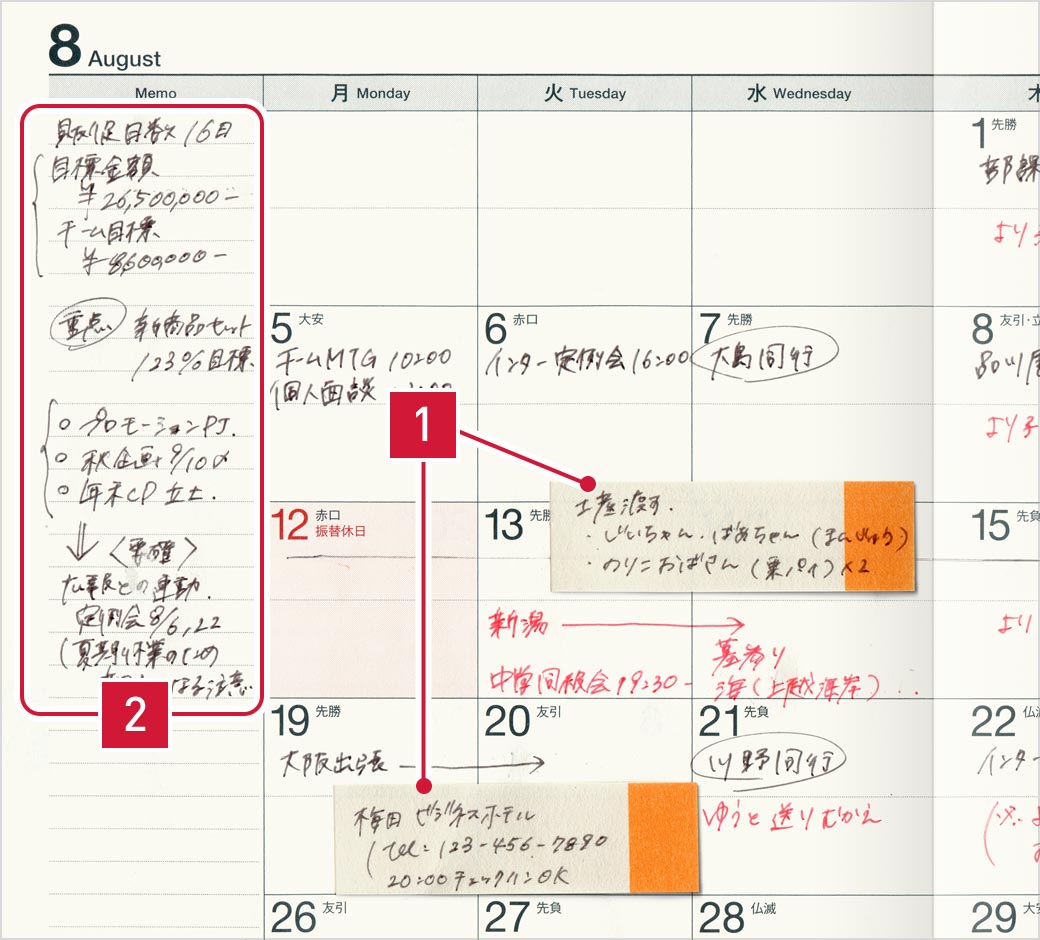 8 August
Memo
月 Monday
火 Tuesday
水 Wednesday
木
販促日巻次16日
目標金額
¥26,500,000-
チーム目標
¥8600000-
重点 新商品セット
123%目標
○ プロモーションPJ.
○ 秋企画 9/10〆
○ 年末CP 立上.
〈要確〉
との連動.
定例会8/6,22
(夏期休業のため
注意
1 先勝
部課
より
5 大安
チームMTG 10:00
個人面談
6 赤口
インター定例会16:00
7 先勝
大島同行
8 友引・立
より
1
土産渡す.
・じいちゃん・ばあちゃん (まんじゅう)
・のりこおばさん (栗パイ)×2
12 赤口
振替休日
13 先勝
新潟
中学同級会 19:30-
墓参り
海(上越海岸)..
15 先負
より
2
19 先勝
大阪出張
20 友引
21 先負
川野同行
ゆうと送りむかえ
22 仏滅
インター
(※
梅田 ビジネスホテル
(Tel: 123-456-7890
20:00チェックインOK
26 友引
27 先負
28 仏滅
29 大安